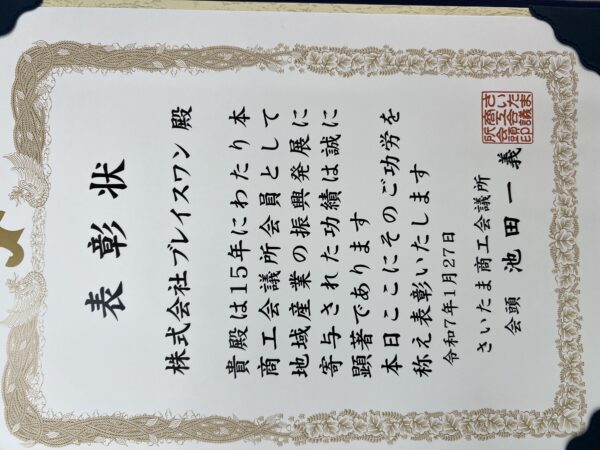 表彰状
株式会社ブレイスワン 殿
貴殿は15年にわたり本
商工会議所会員として
地域産業の振興発展に
寄与された功績は誠に
顕著であります
本日ここにそのご功労を
称え表彰いたします
令和7年1月27日
さいたま商工会議所
会頭 池田一義
さいたま商工会議所会頭印